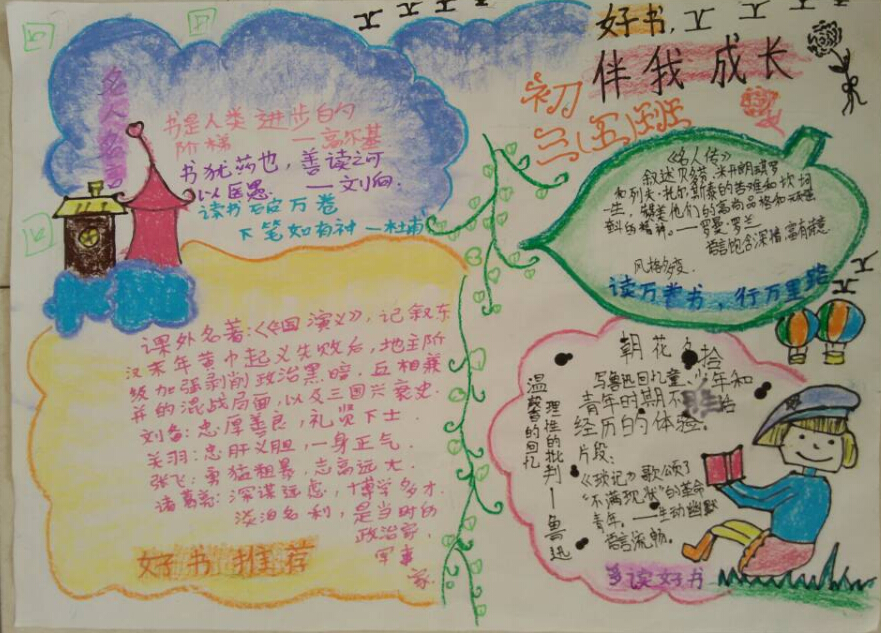 好书,
伴我成长
初三(五)班
名人名言
书是人类进步的
阶梯 ——高尔基
书犹药也,善读之可
以医愚. ——刘向.
读书破万卷
下笔如有神—杜甫
《名人传》
叙述贝多芬、米开朗琪罗
和列夫·托尔斯泰的苦难和坎坷
一生,赞美他们的高尚品格和
的精神。——罗曼·罗兰
语言饱含深情,富有诗意
风格多变.
读万卷书,行万里路
课外名著:《三国演义》,记叙东
汉末年黄巾起义失败后,地主阶
级加强剥削政治黑暗.互相兼
并的混战局面,以及三国兴衰史.
刘备:忠厚善良,礼贤下士.
关羽:忠肝义胆,一身正气.
张飞:勇猛粗暴,志高远大.
诸葛亮:深谋远虑,博学多才.
淡泊名利,是当时的
政治家.
军事
家.
好书推荐
朝花夕拾
写鲁迅回忆童、少年和
青年时期不
经历的体验。
片段:
《琐记》歌颂了
"不满现状"的革命
青年。——生动幽默
语言流畅。
温馨的回忆
理性的批判—鲁迅
多读好书